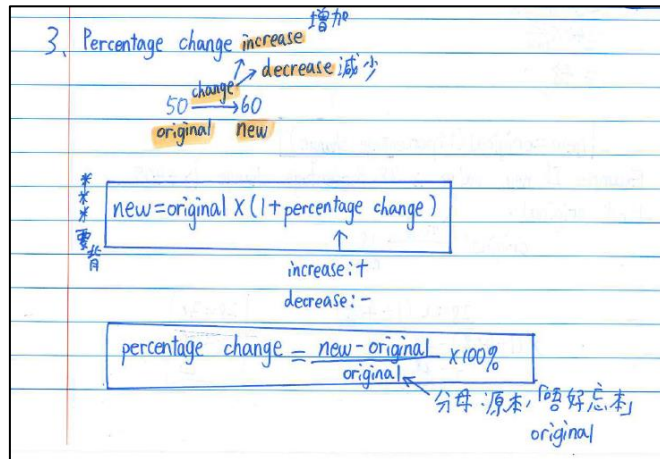 增加
3. Percentage change increase
decrease 減少
change
50 → 60
original new
***要背
new=original X (1+percentage change)
↑
increase:+
decrease:-
percentage change = new-original / original X100%
分母:源本,「唔好忘本」
original